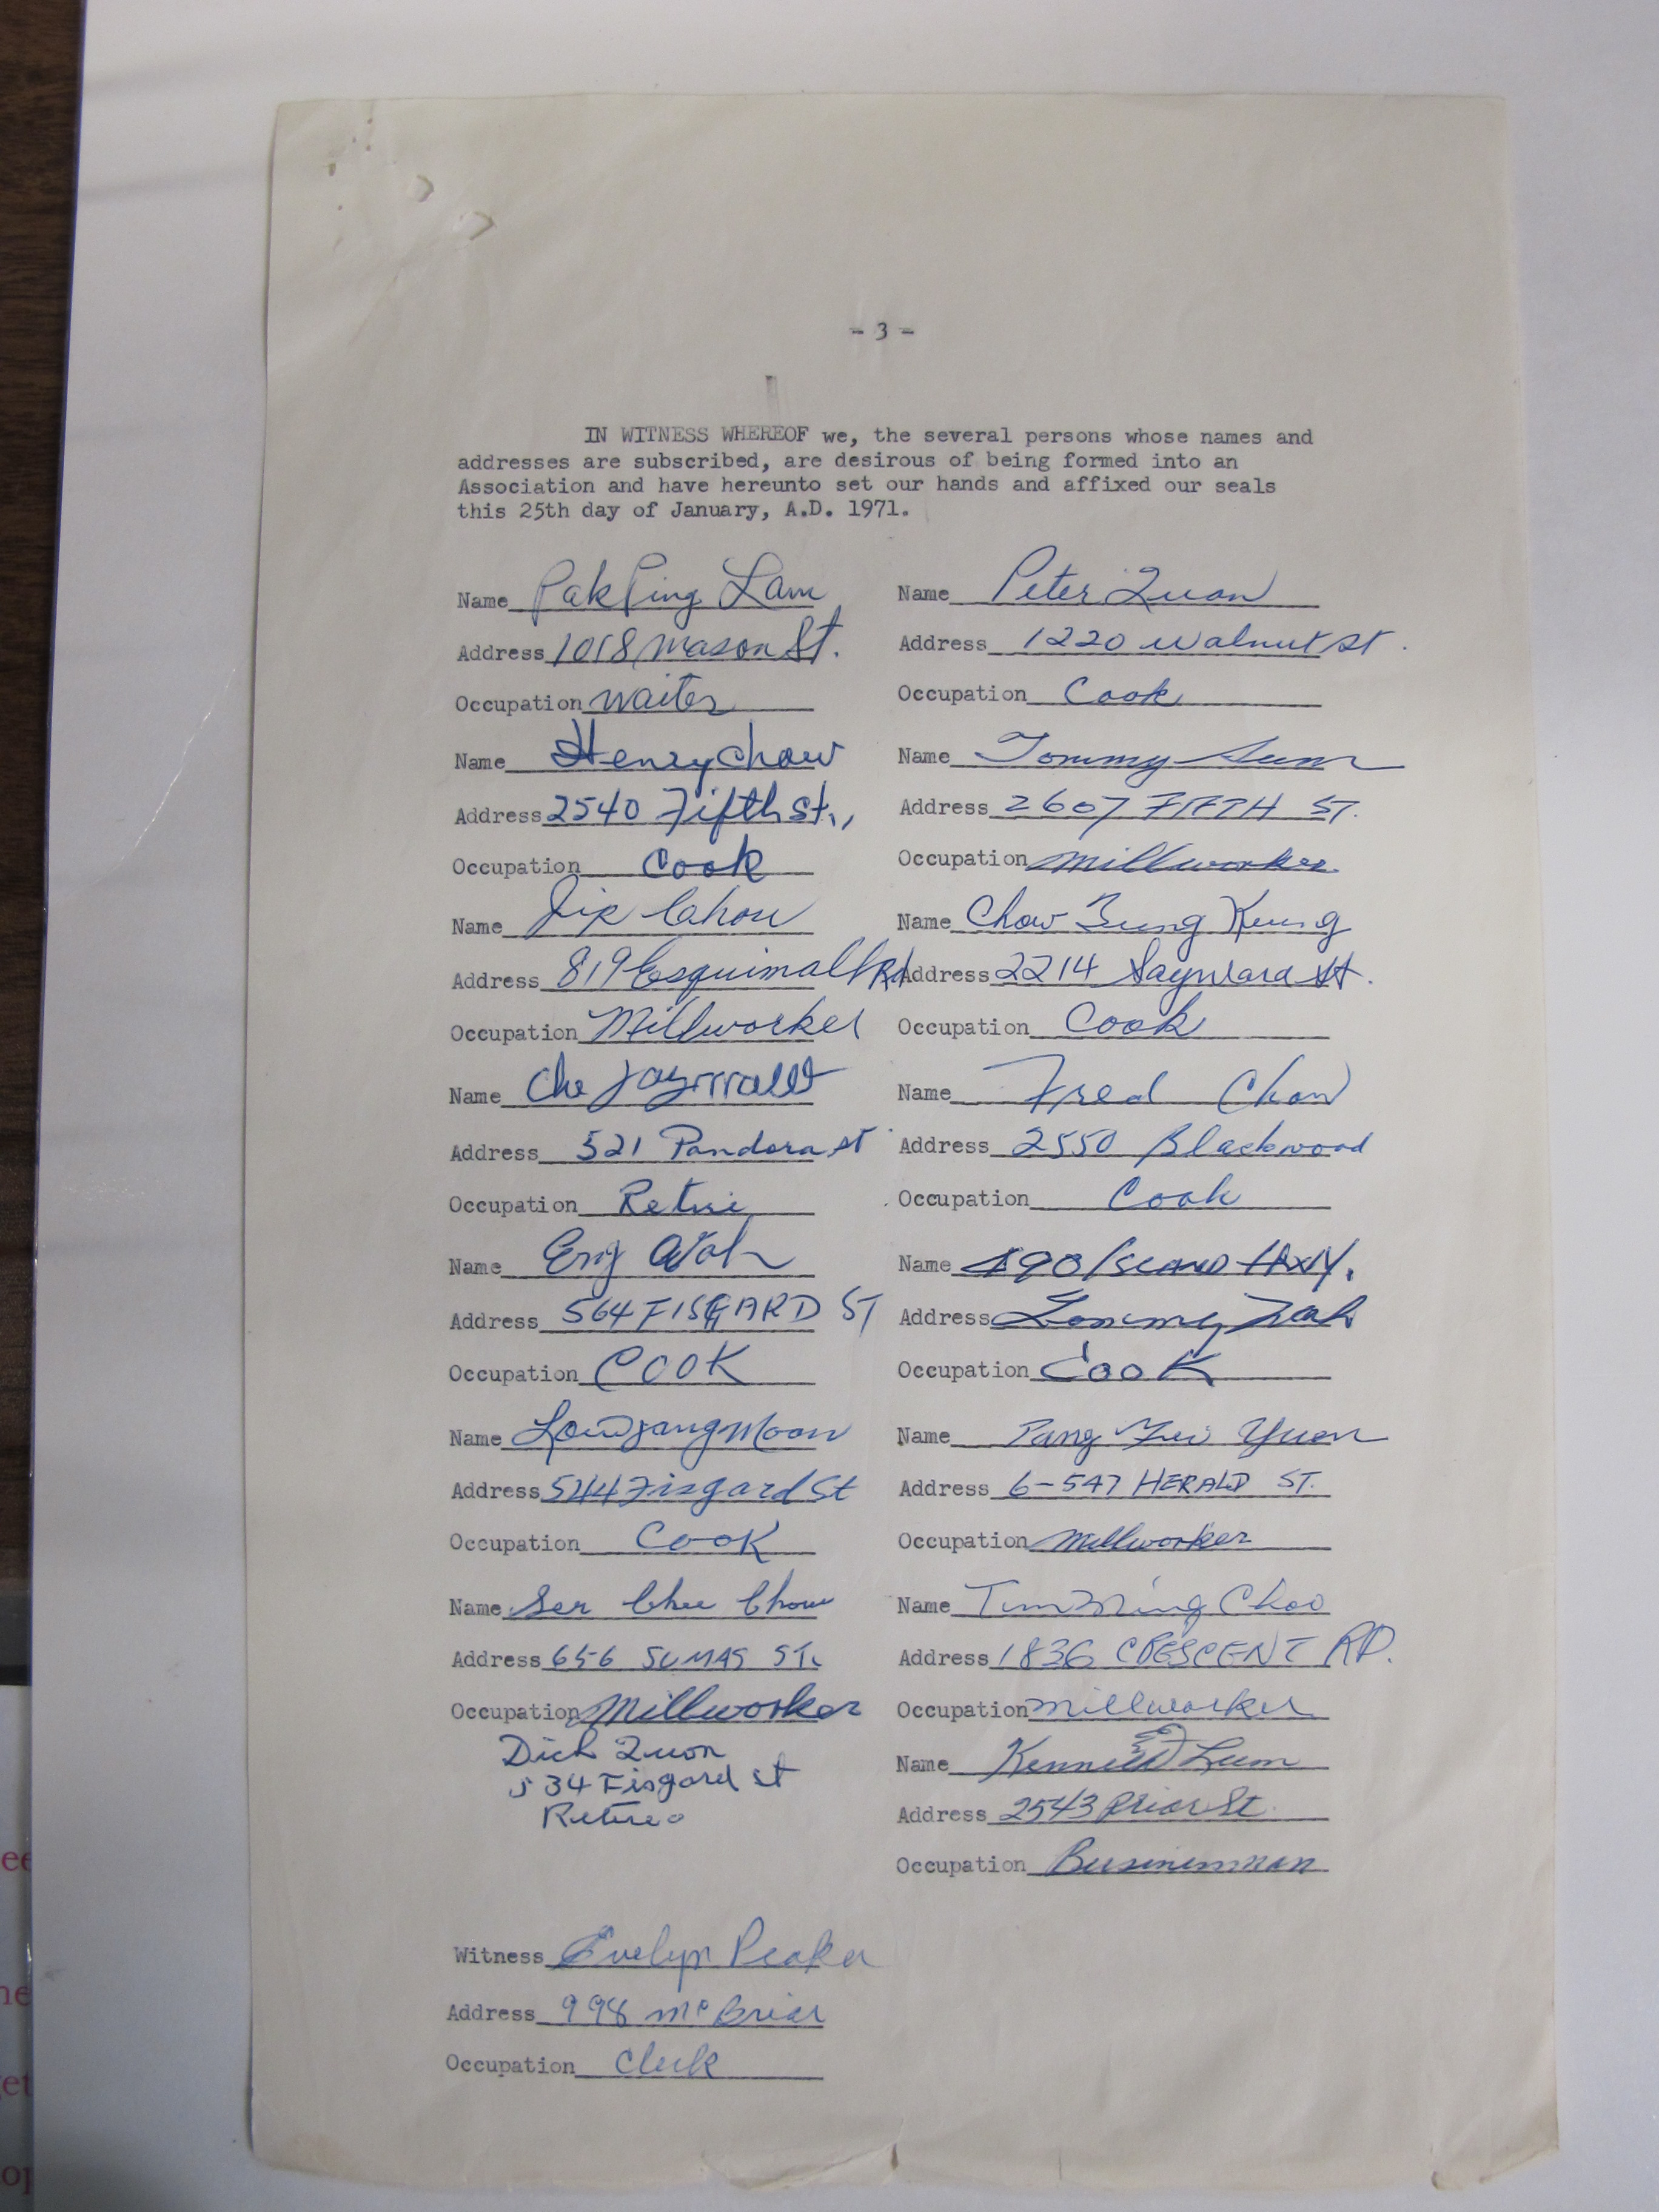 - 3 -
IN WITNESS WHEREOF we, the several persons whose names and
addresses are subscribed, are desirous of being formed into an
Association and have hereunto set our hands and affixed our seals
this 25th day of January, A.D. 1971.
Name Pak Ping Lam
Address 1018 Mason St.
Occupation Waiter
Name Henry Chow
Address 2540 Fifth St.,
Occupation Cook
Name Jip Chow
Address 819 Esquimalt Rd
Occupation Millworker
Name
Address 521 Pandora St
Occupation Retire
Name Eng Wah
Address 564 FISGARD ST
Occupation COOK
Name Low Jang Moon
Address 544 Fisgard St
Occupation Cook
Name Ser Chee Chow
Address 656 SUMAS ST.
Occupation Millworker
Dick Quon
534 Fisgard st
Retired
Name Peter Quon
Address 1220 Walnut St.
Occupation Cook
Name Tommy
Address 2607 FIFTH ST.
Occupation Millworker
Name Chow Keung
Address 2214 Sayward St.
Occupation Cook
Name Fred Chow
Address 2550 Blackwood
Occupation Cook
Name 490 ISLAND HXIY.
Address Tommy
Occupation Cook
Name Pang Yuen
Address 6-547 HERALD ST.
Occupation Millworker
Name Tim Ming Choo
Address 1836 CRESCENT RD.
Occupation Millworker
Name Kenneth Lum
Address 2543 Prior St.
Occupation Businessman
Witness Evelyn Peaker
Address 998 McBriar
Occupation Clerk